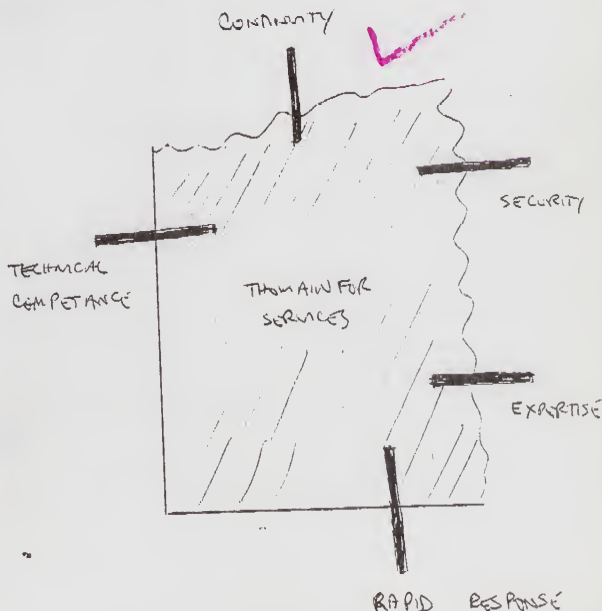 CONTINUITY
SECURITY
TECHNICAL
COMPETANCE
THOMAIN FOR
SERVICES
EXPERTISE
RAPID RESPONSE